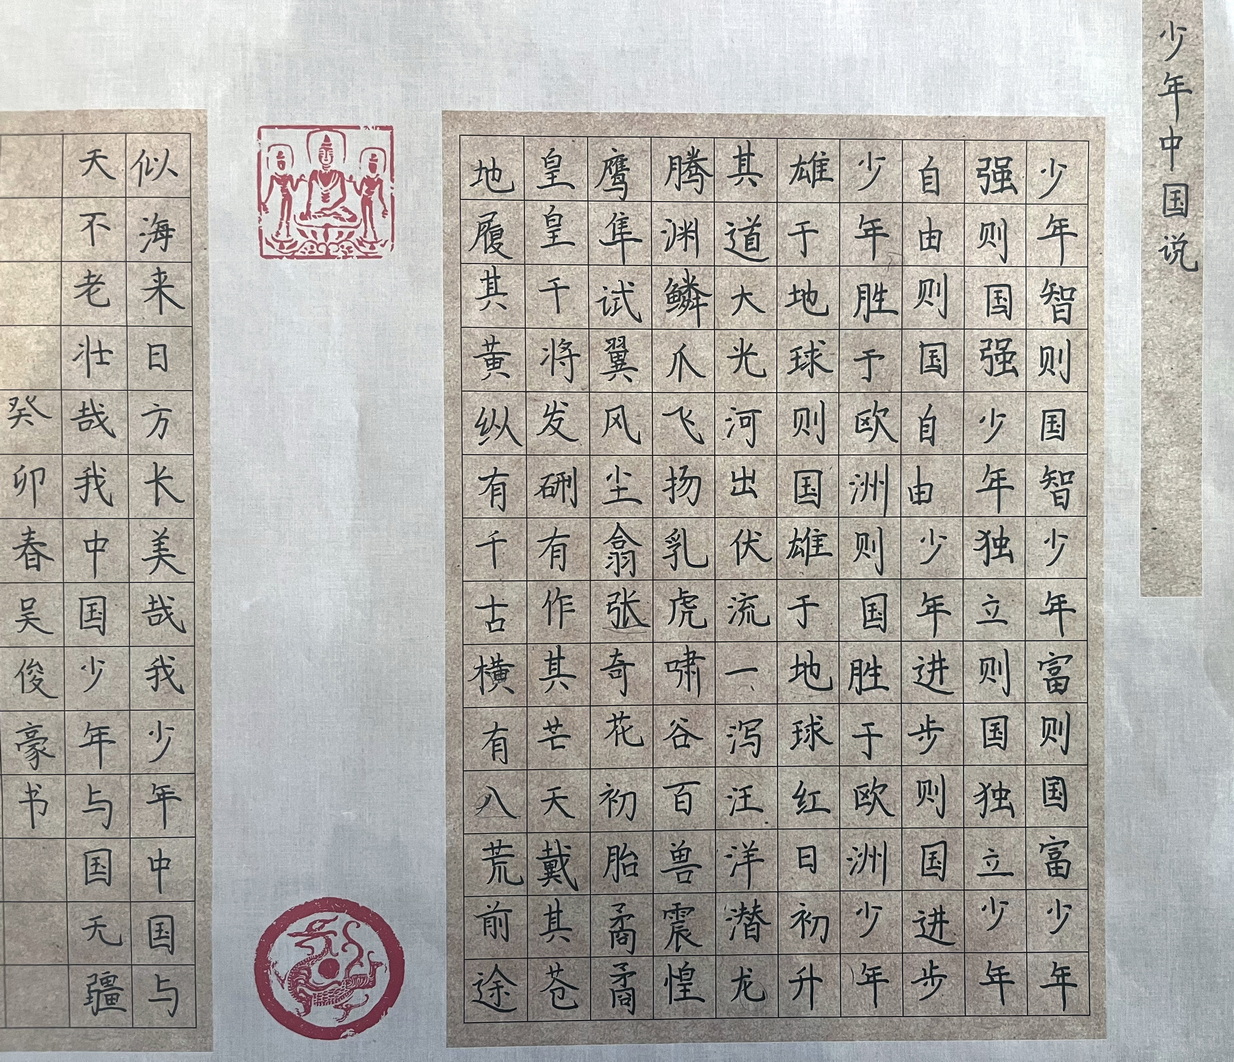 少年中国说
少年智则国智少年富则国富少年
强则国强少年独立则国独立少年
自由则国自由少年进步则国进步
少年胜于欧洲则国胜于欧洲少年
雄于地球则国雄于地球红日初升
其道大光河出伏流一泻汪洋潜龙
腾渊鳞爪飞扬乳虎啸谷百兽震惶
鹰隼试翼风尘翕张奇花初胎矞矞
皇皇干将发硎有作其芒天戴其苍
地履其黄纵有千古横有八荒前途
似海来日方长美哉我少年中国与
天不老壮哉我中国少年与国无疆
癸卯春吴俊豪书